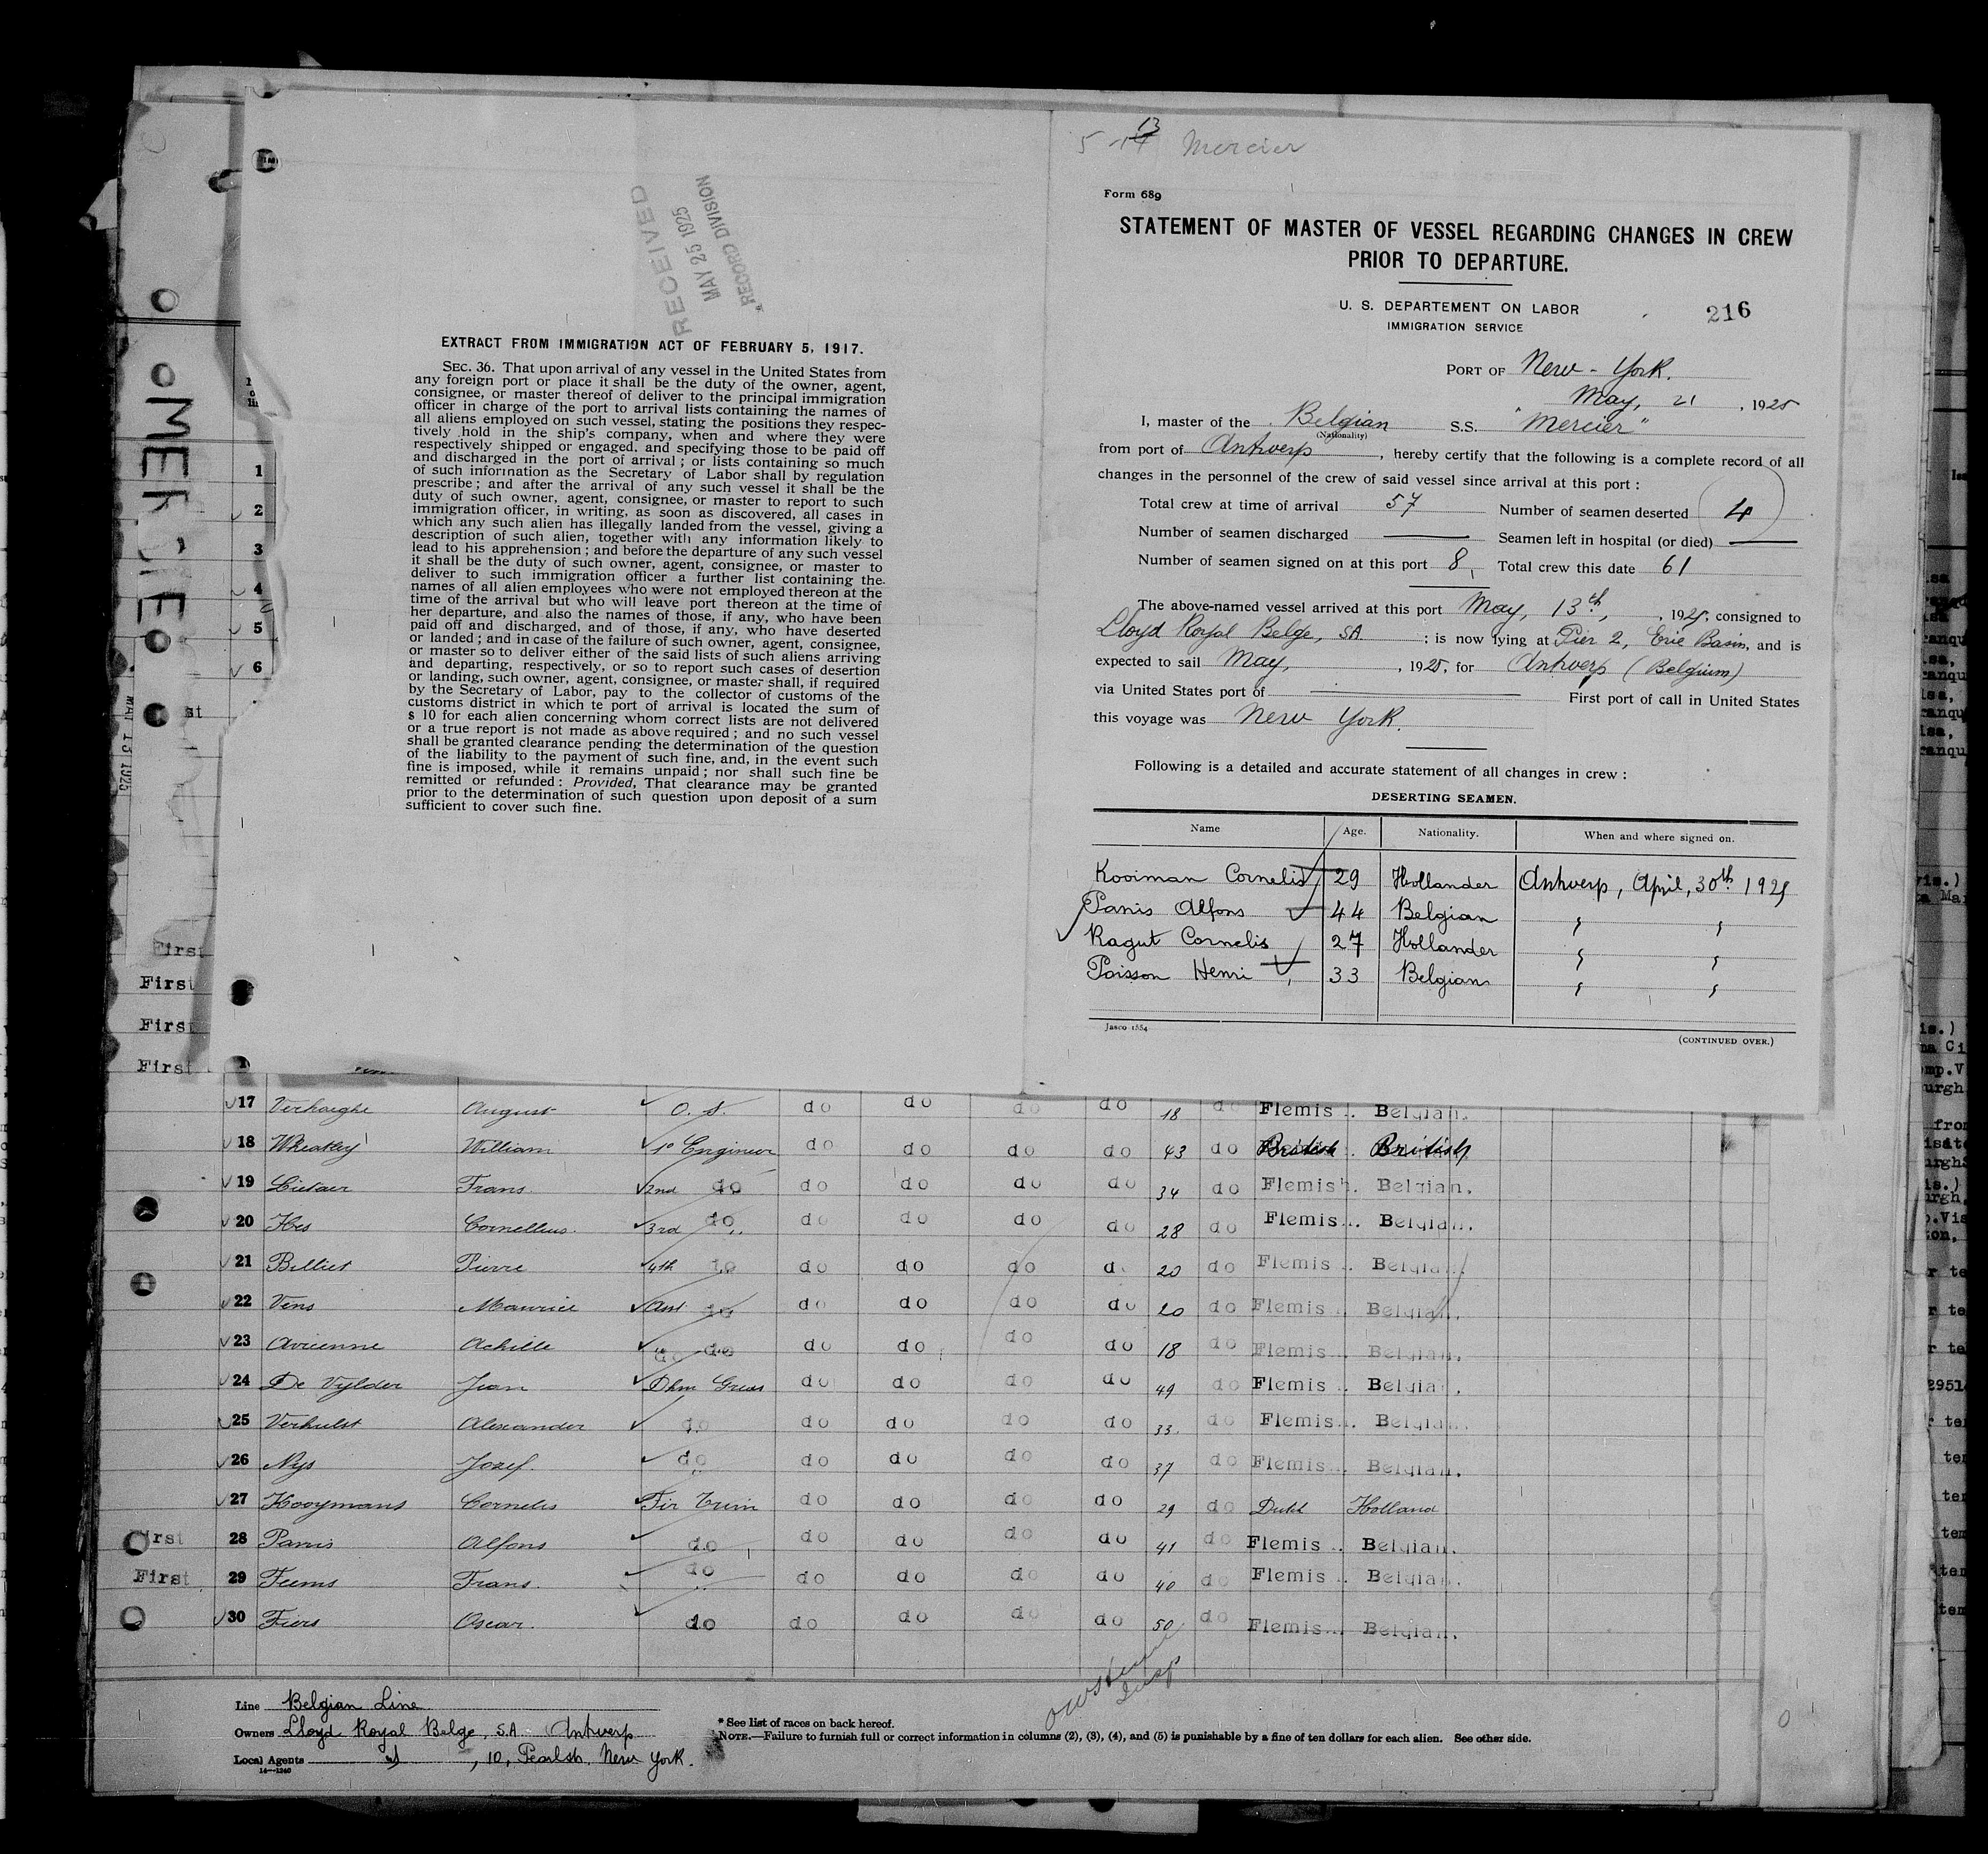 5-14 13 Mercier
RECEIVED
MAY 25 1925
RECORD DIVISION
EXTRACT FROM IMMIGRATION ACT OF FEBRUARY 5, 1917.
SEC. 36. That upon arrival of any vessel in the United States from
any foreign port or place it shall be the duty of the owner, agent,
consignee, or master thereof of deliver to the principal immigration
officer in charge of the port to arrival lists containing the names of
all aliens employed on such vessel, stating the positions they respec-
tively hold in the ship's company, when and where they were
respectively shipped or engaged, and specifying those to be paid off
and discharged in the port of arrival; or lists containing so much
of such information as the Secretary of Labor shall by regulation
prescribe; and after the arrival of any such vessel it shall be the
duty of such owner, agent, consignee, or master to report to such
immigration officer, in writing, as soon as discovered, all cases in
which any such alien has illegally landed from the vessel, giving a
description of such alien, together with any information likely to
lead to his apprehension; and before the departure of any such vessel
it shall be the duty of such owner, agent, consignee, or master to
deliver to such immigration officer a further list containing the
names of all alien employees who were not employed thereon at the
time of the arrival but who will leave port thereon at the time of
her departure, and also the names of those, if any, who have been
paid off and discharged, and of those, if any, who have deserted
or landed; and in case of the failure of such owner, agent, consignee,
or master so to deliver either of the said lists of such aliens arriving
and departing, respectively, or so to report such cases of desertion
or landing, such owner, agent, consignee, or master shall, if required
by the Secretary of Labor, pay to the collector of customs of the
customs district in which te port of arrival is located the sum of
$ 10 for each alien concerning whom correct lists are not delivered
or a true report is not made as above required; and no such vessel
shall be granted clearance pending the determination of the question
of the liability to the payment of such fine, and, in the event such
fine is imposed, while it remains unpaid; nor shall such fine be
remitted or refunded: Provided, That clearance may be granted
prior to the determination of such question upon deposit of a sum
sufficient to cover such fine.
Form 689
STATEMENT OF MASTER OF VESSEL REGARDING CHANGES IN CREW
PRIOR TO DEPARTURE.
U. S. DEPARTEMENT ON LABOR
216
IMMIGRATION SERVICE
PORT OF New-York.
May, 21, 1925
I, master of the Belgian S.S. "Mercier"
(Nationality)
from port of Antwerp, hereby certify that the following is a complete record of all
changes in the personnel of the crew of said vessel since arrival at this port:
Total crew at time of arrival 57 Number of seamen deserted 4
Number of seamen discharged — Seamen left in hospital (or died) —
Number of seamen signed on at this port 8, Total crew this date 61
The above-named vessel arrived at this port May, 13th, 1925, consigned to
Lloyd Royal Belge, SA; is now lying at Pier 2, Erie Basin, and is
expected to sail May, 1925, for Antwerp (Belgium)
via United States port of — First port of call in United States
this voyage was New York.
Following is a detailed and accurate statement of all changes in crew:
DESERTING SEAMEN.
Name Age. Nationality. When and where signed on.
Kooiman Cornelis 29 Hollander Antwerp, April, 30th 1925
Panis Alfons 44 Belgian " "
Ragut Cornelis 27 Hollander " "
Poisson Henri 33 Belgian " "
Jasco 1554
(CONTINUED OVER.)
MERCIER
MAY 13 1925
1
2
3
4
5
6
First
First
First
First
17 Verhaeghe August O. S. do do do do 18 do Flemis. Belgian.
18 Wheatley William 1o Engineer do do do do 43 do British British
19 Lietaer Frans 2nd do do do do do 34 do Flemish. Belgian.
20 Hes Cornelius 3rd do do do do do 28 do Flemis. Belgian.
21 Billiet Pierre 4th do do do do d 20 do Flemis Belgian.
22 Vens Maurice Asst do do do do do 20 do Flemis Belgian.
23 Avrienne Achille do do do do do do 18 do Flemis Belgian.
24 De Vylder Jean Dkm Greas do do do do 49 do Flemis Belgian.
25 Verhulst Alexander do do do do do 33 do Flemis. Belgian.
26 Nys Jozef do do do do do 37 do Flemis Belgian.
27 Kooymans Cornelis Fir Trim do do do do 29 do Dutch Holland
First 28 Panis Alfons do do do do do 41 do Flemis Belgian.
First 29 Feems Frans do do do do do 40 do Flemis Belgian.
30 Fiers Oscar do do do do do 50 do Flemis Belgian.
Line Belgian Line
Owners Lloyd Royal Belge, S.A. Antwerp
Local Agents " , 10, Pearlstr. New York.
14—1240
* See list of races on back hereof.
NOTE.—Failure to furnish full or correct information in columns (2), (3), (4), and (5) is punishable by a fine of ten dollars for each alien. See other side.